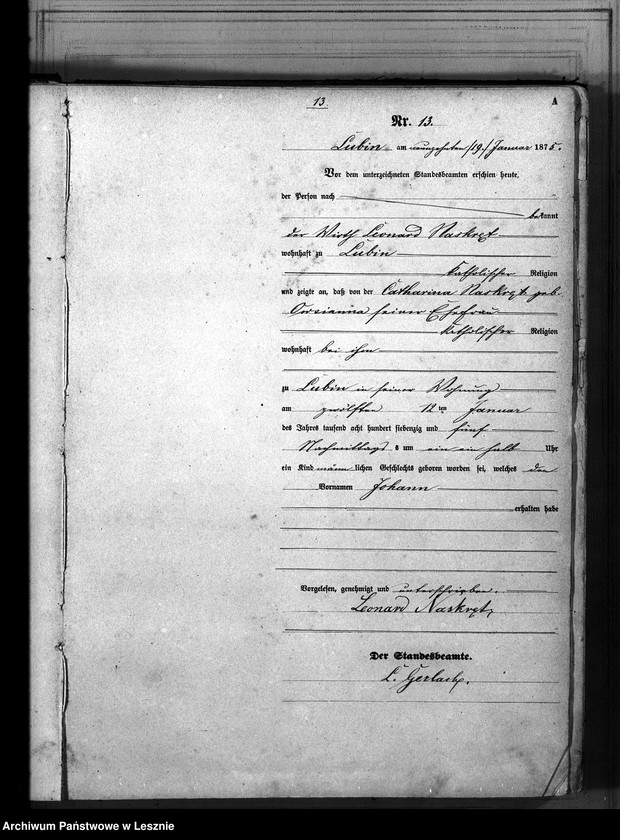 13
A
Nr. 13.
Lubin am neunzehnten /19./ Januar 1875.
Vor dem unterzeichneten Standesbeamten erschien heute,
der Person nach
bekannt
der Wirth Leonard
wohnhaft zu Lubin
katholischer Religion
und zeigte an, daß von der Catharina geb.
seiner Ehefrau
katholischer Religion
wohnhaft bei ihm
zu Lubin in seiner Wohnung
am zwölften 12ten Januar
des Jahres tausend acht hundert siebenzig und fünf
Nachmittags um ein ein halb Uhr
ein Kind männlichen Geschlechts geboren worden sei, welches den
Vornamen Johann
erhalten habe
Vorgelesen, genehmigt und unterschrieben.
Leonard
Der Standesbeamte.
Gerlach.
Archiwum Państwowe w Lesznie